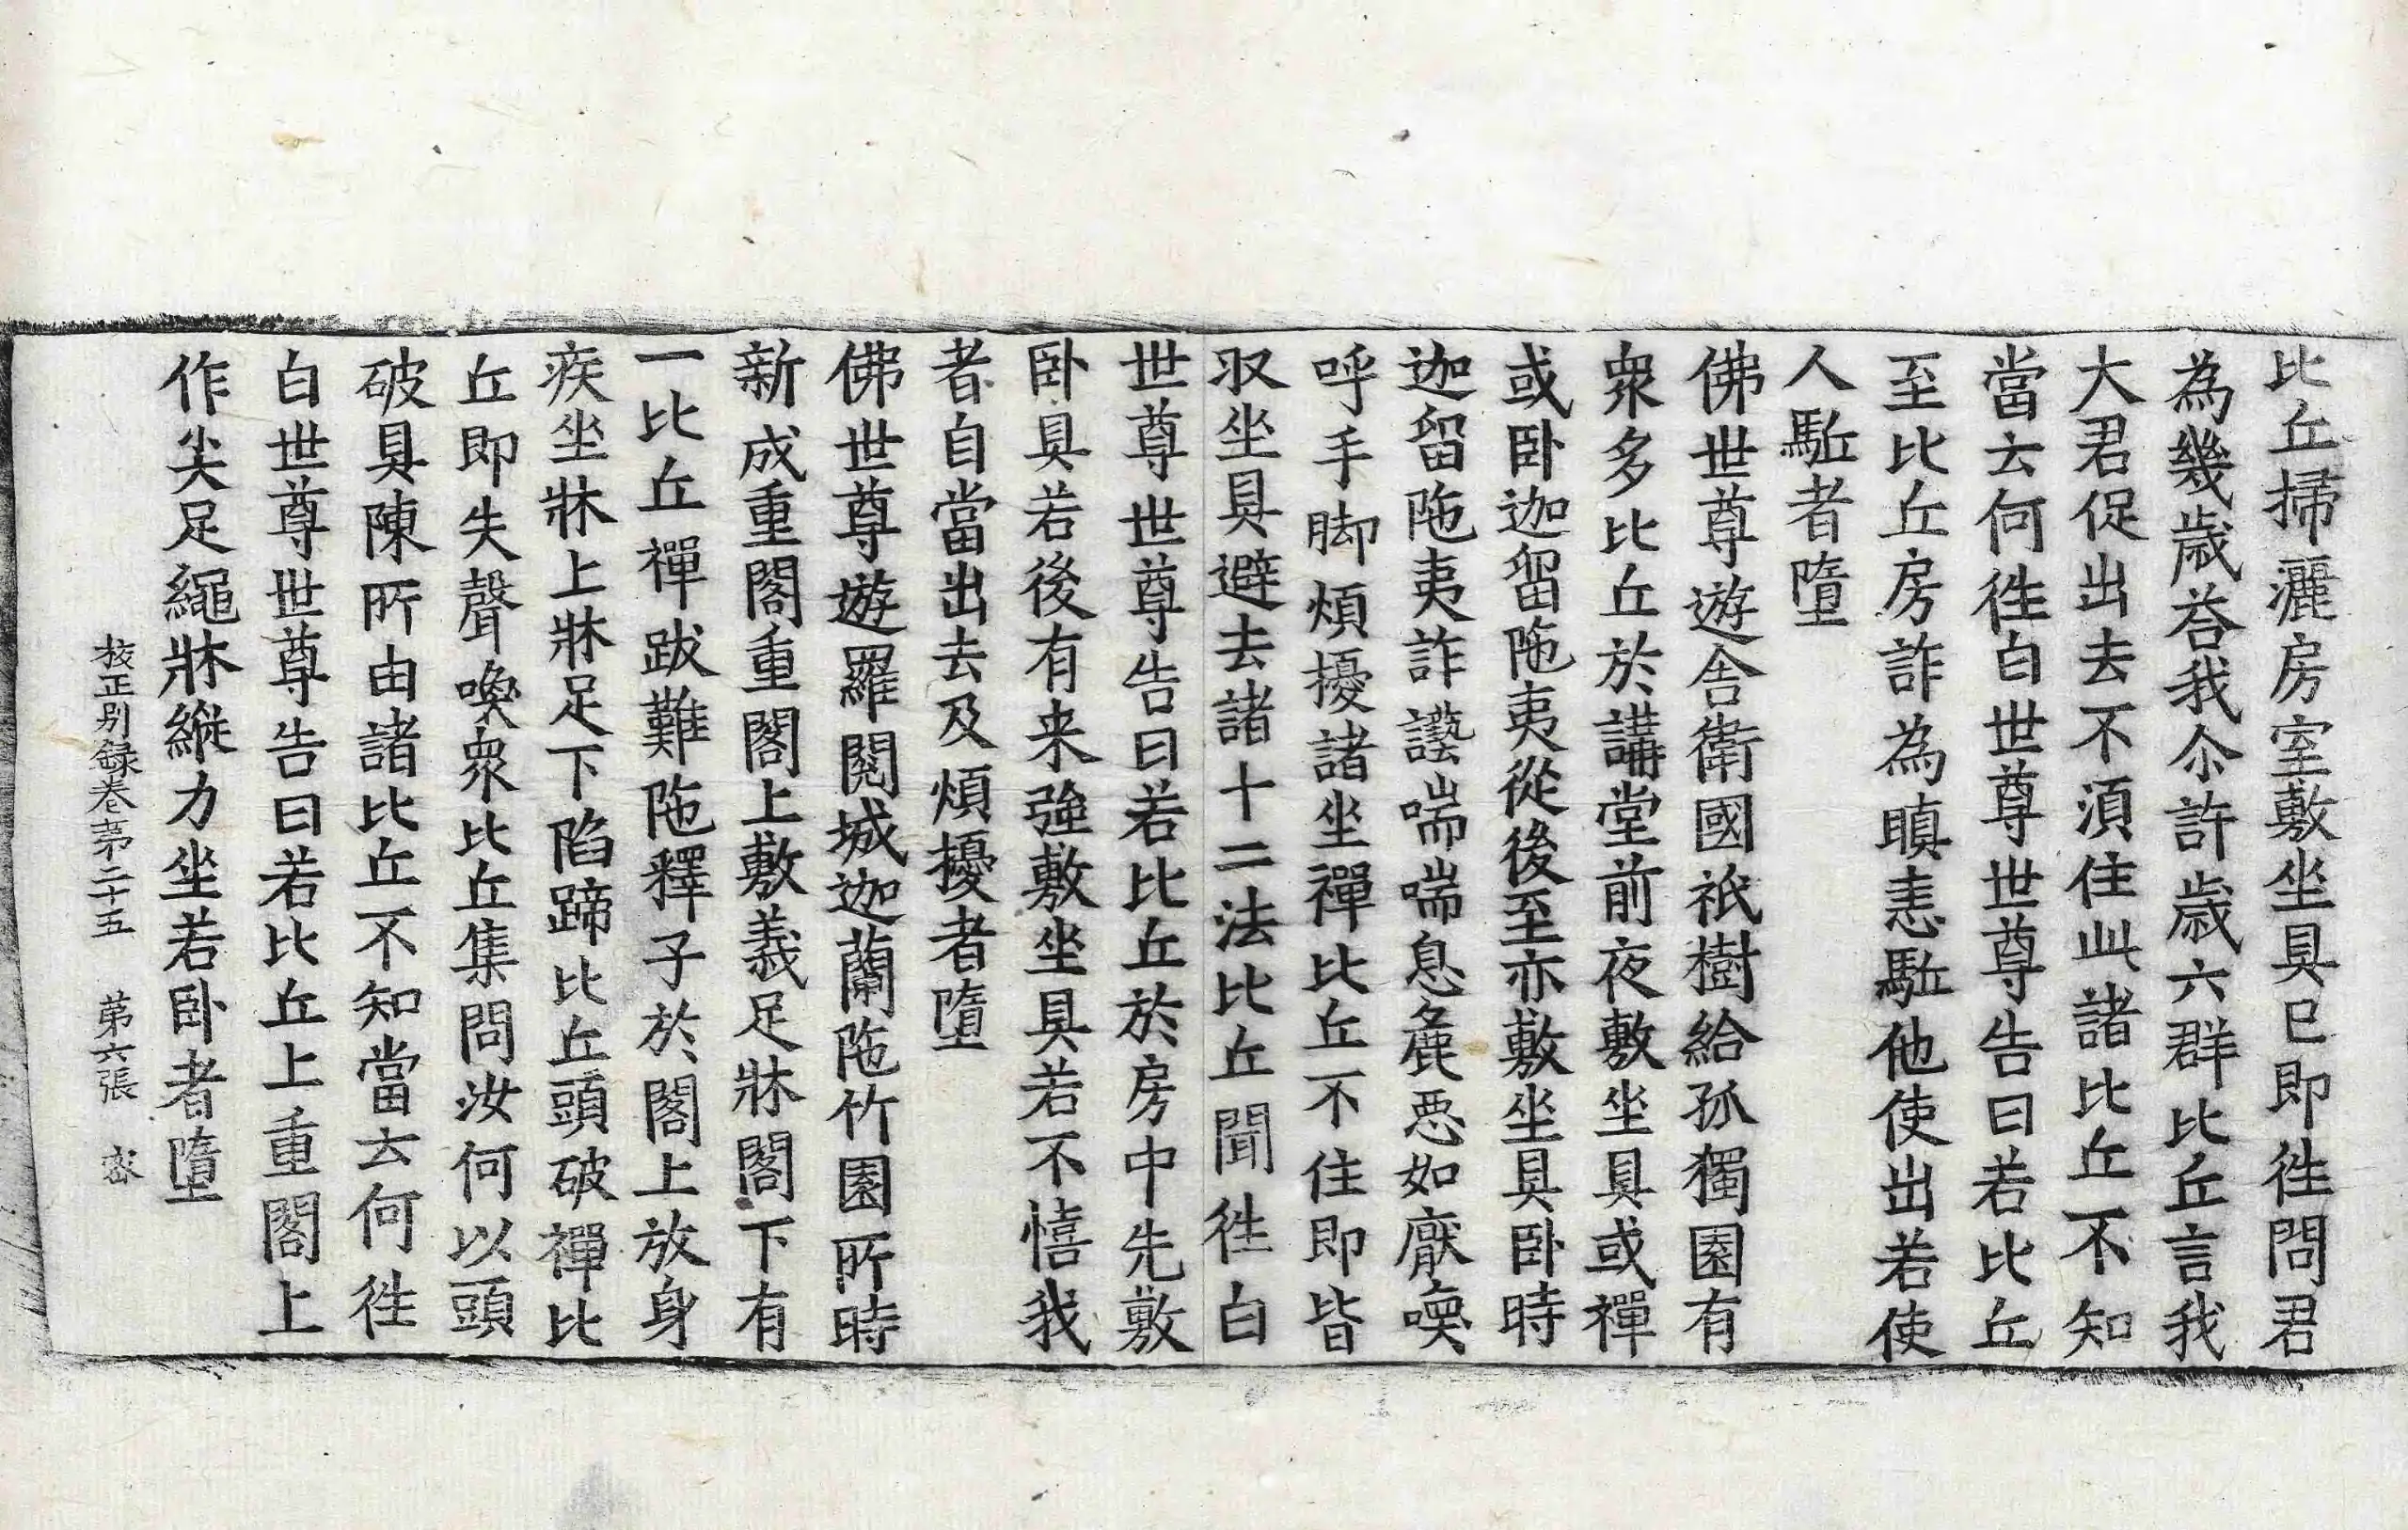 比丘掃灑房室敷坐具已即徃問君
為幾歳荅我尒許歳六群比丘言我
大君促出去不湏住此諸比丘不知
當云何徃白世尊世尊告曰若比丘
至比丘房詐為瞋恚駈他使出若使
人駈者墮
佛世尊遊舎衛國祇樹給孤獨園有
衆多比丘於講堂前夜敷坐具或禪
或卧迦留陁夷從後至亦敷坐具卧時
迦留陁夷詐讛喘喘息麁惡如厭喚
呼手脚煩擾諸坐禪比丘不住即皆
収坐具避去諸十二法比丘聞徃白
世尊世尊告曰若比丘於房中先敷
卧具若後有来強敷坐具若不憘我
者自當出去及煩擾者墮
佛世尊遊羅閱城迦蘭陁竹園所時
新成重閣重閣上敷義足牀閣下有
一比丘禪跋難陁釋子於閣上放身
疾坐牀上牀足下陷蹄比丘頭破禪比
丘即失聲喚衆比丘集問汝何以頭
破具陳所由諸比丘不知當云何徃
白世尊世尊告曰若比丘上重閣上
作尖足繩牀縱力坐若卧者墮
校正别録卷苐二十五 苐六張 宻